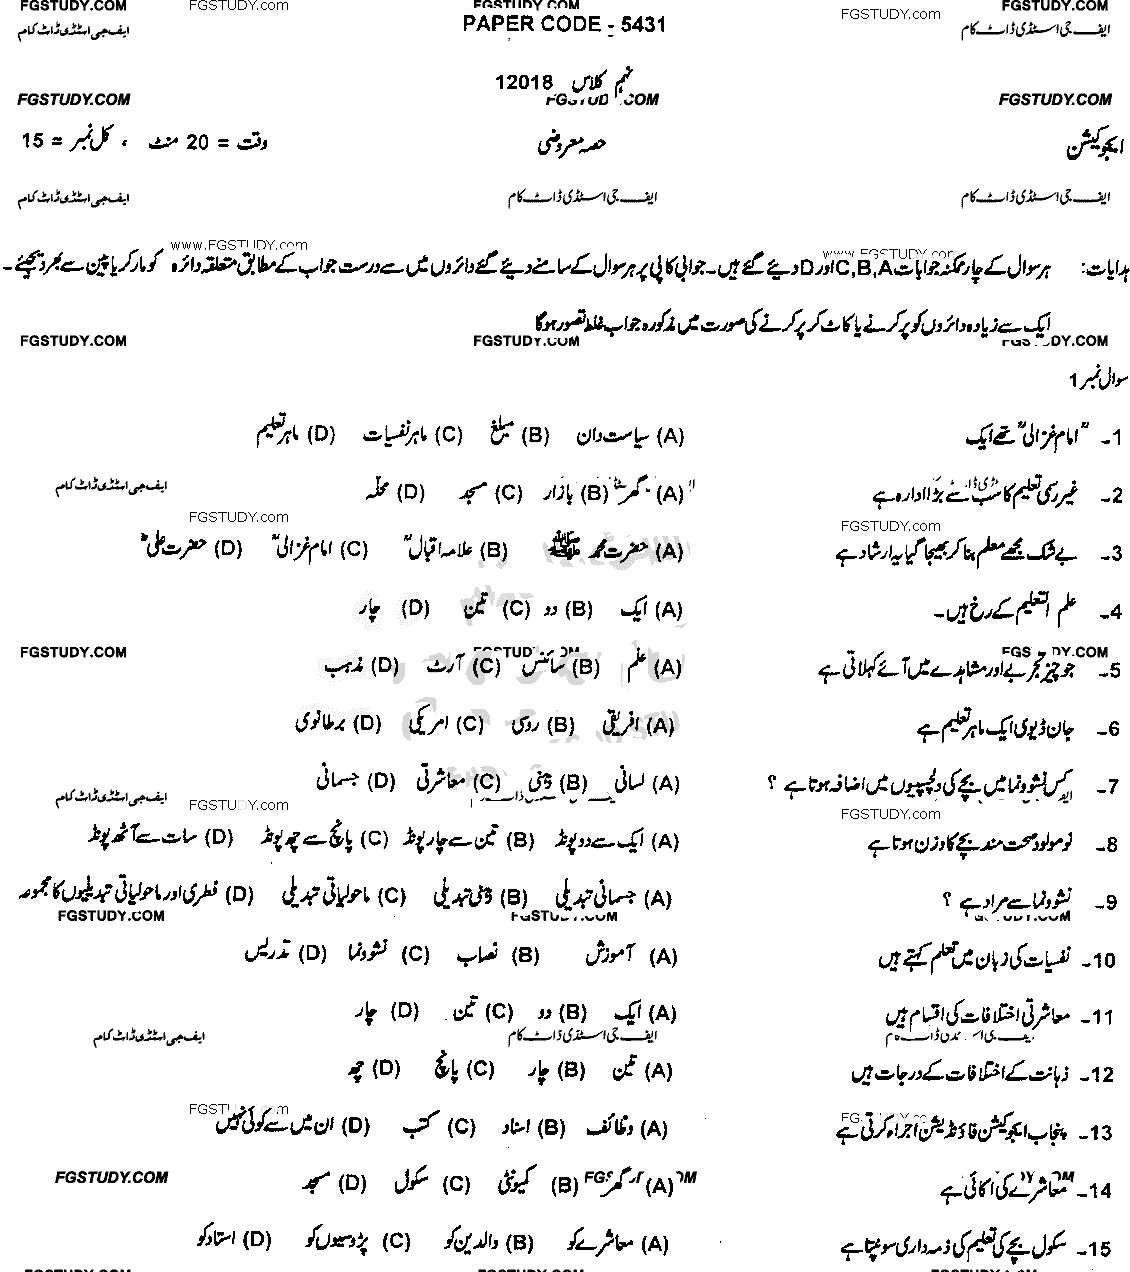 FGSTUDY.COM FGSTUDY.COM FGSTUDY.com FGSTUDY.COM
ایف جی اسٹڈی ڈاٹ کام PAPER CODE - 5431 ایف جی اسٹڈی ڈاٹ کام
نہم کلاس 12018
FGSTUDY.COM FGSTUDY.COM FGSTUDY.COM
ایجوکیشن حصہ معروضی وقت = 20 منٹ ، کل نمبر = 15
ایف جی اسٹڈی ڈاٹ کام ایف جی اسٹڈی ڈاٹ کام ایف جی اسٹڈی ڈاٹ کام
www.FGSTUDY.com www.FGSTUDY.com
ہدایات: ہر سوال کے چار ممکنہ جوابات A,B,C اور D دیئے گئے ہیں۔ جوابی کاپی پر ہر سوال کے سامنے دیئے گئے دائروں میں سے درست جواب کے مطابق متعلقہ دائرہ کو مارکر یا پین سے بھر دیجئے۔
ایک سے زیادہ دائروں کو پر کرنے یا کاٹ کر پر کرنے کی صورت میں مذکورہ جواب غلط تصور ہوگا
FGSTUDY.COM FGSTUDY.COM FGSTUDY.COM
سوال نمبر 1
1۔ "امام غزالیؒ" تھے ایک (A) سیاست دان (B) مبلغ (C) ماہر نفسیات (D) ماہر تعلیم
2۔ غیر رسمی تعلیم کا سب سے بڑا ادارہ ہے (A) گھر (B) بازار (C) مسجد (D) محلہ
ایف جی اسٹڈی ڈاٹ کام
FGSTUDY.com FGSTUDY.com
3۔ بے شک مجھے معلم بنا کر بھیجا گیا یہ ارشاد ہے (A) حضرت محمد ﷺ (B) علامہ اقبالؒ (C) امام غزالیؒ (D) حضرت علیؓ
4۔ علم التعلیم کے رخ ہیں۔ (A) ایک (B) دو (C) تین (D) چار
FGSTUDY.COM FGSTUDY.COM FGSTUDY.COM
5۔ جو چیز تجربے اور مشاہدے میں آئے کہلاتی ہے (A) علم (B) سائنس (C) آرٹ (D) مذہب
6۔ جان ڈیوی ایک ماہر تعلیم ہے (A) افریقی (B) روسی (C) امریکی (D) برطانوی
7۔ کس نشوونما میں بچے کی دلچسپیوں میں اضافہ ہوتا ہے ؟ (A) لسانی (B) ذہنی (C) معاشرتی (D) جسمانی
ایف جی اسٹڈی ڈاٹ کام
FGSTUDY.com FGSTUDY.com
8۔ نومولود صحت مند بچے کا وزن ہوتا ہے (A) ایک سے دو پونڈ (B) تین سے چار پونڈ (C) پانچ سے چھ پونڈ (D) سات سے آٹھ پونڈ
9۔ نشوونما سے مراد ہے ؟ (A) جسمانی تبدیلی (B) ذہنی تبدیلی (C) ماحولیاتی تبدیلی (D) فطری اور ماحولیاتی تبدیلیوں کا مجموعہ
FGSTUDY.COM FGSTUDY.COM FGSTUDY.COM
10۔ نفسیات کی زبان میں تعلم کہتے ہیں (A) آموزش (B) نصاب (C) نشوونما (D) تدریس
11۔ معاشرتی اختلافات کی اقسام ہیں (A) ایک (B) دو (C) تین (D) چار
ایف جی اسٹڈی ڈاٹ کام ایف جی اسٹڈی ڈاٹ کام
12۔ ذہانت کے اختلافات کے درجات ہیں (A) تین (B) چار (C) پانچ (D) چھ
FGSTUDY.com
13۔ پنجاب ایجوکیشن فاؤنڈیشن اجراء کرتی ہے (A) وظائف (B) اسناد (C) کتب (D) ان میں سے کوئی نہیں
FGSTUDY.COM
14۔ معاشرے کی اکائی ہے (A) گھر (B) کمیونٹی (C) سکول (D) مسجد
15۔ سکول بچے کی تعلیم کی ذمہ داری سونپتا ہے (A) معاشرے کو (B) والدین کو (C) پڑوسیوں کو (D) استاد کو
FGSTUDY.COM FGSTUDY.COM FGSTUDY.COM